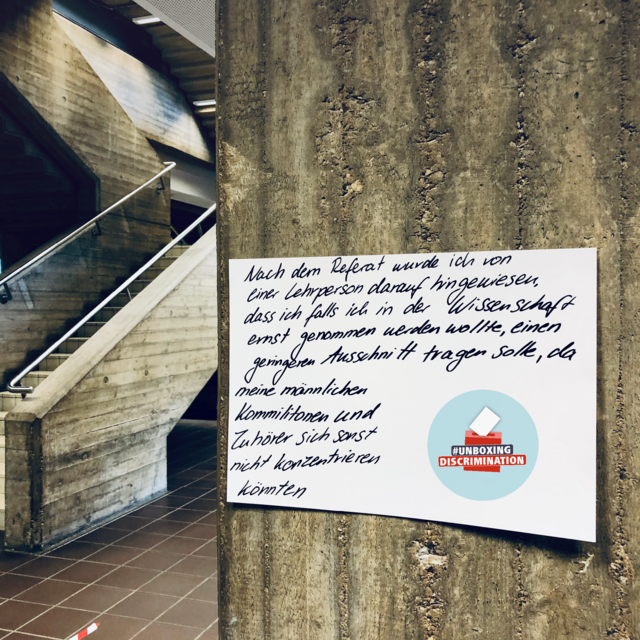 Nach dem Referat wurde ich von
einer Lehrperson darauf hingewiesen,
dass ich falls ich in der Wissenschaft
ernst genommen werden wollte, einen
geringeren Ausschnitt tragen solle, da
meine männlichen
Kommilitonen und
Zuhörer sich sonst
nicht konzentrieren
könnten
#UNBOXING
DISCRIMINATION